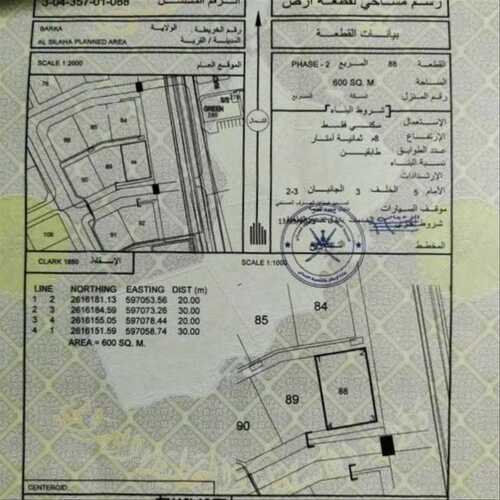 رسم مساحي لقطعة أرض
3-04-357-01-088
الولاية
BARKA
رقم الخريطة
AL SILAHA PLANNED AREA
المدينة / القرية
SCALE 1:2000
الموقع العام
بيانات القطعة
القطعة 88 المربع PHASE - 2
المساحة 600 SQ. M.
رقم المنزل السكة المربع
شروط البناء
الإستعمال سكني فقط
الإرتفاع 8م ثمانية أمتار
عدد الطوابق طابقين
نسبة البناء
الإرتدادات
الأمام 5 الخلف 3 الجانبين 2-3
موقف السيارات
شروط أخرى
المخطط
GREEN
CLARK 1880
SCALE 1:1000
LINE NORTHING EASTING DIST (m)
1 2 2616181.13 597053.56 20.00
2 3 2616184.59 597073.26 30.00
3 4 2616155.05 597078.44 20.00
4 1 2616151.59 597058.74 30.00
AREA = 600 SQ. M.
84
85
88
89
90
CENTEROID